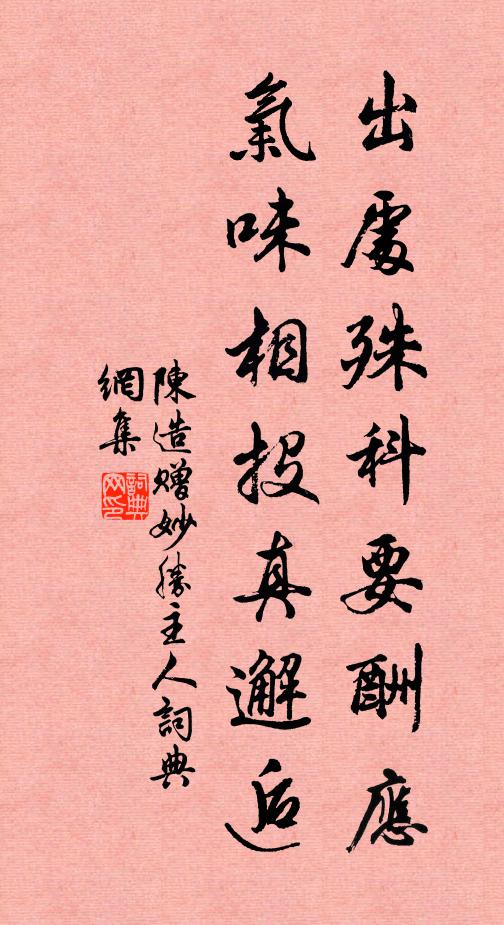 出處殊科要酬應
氣味相投真邂逅
陳造贈妙勝主人詞典
網集
詞典
网印